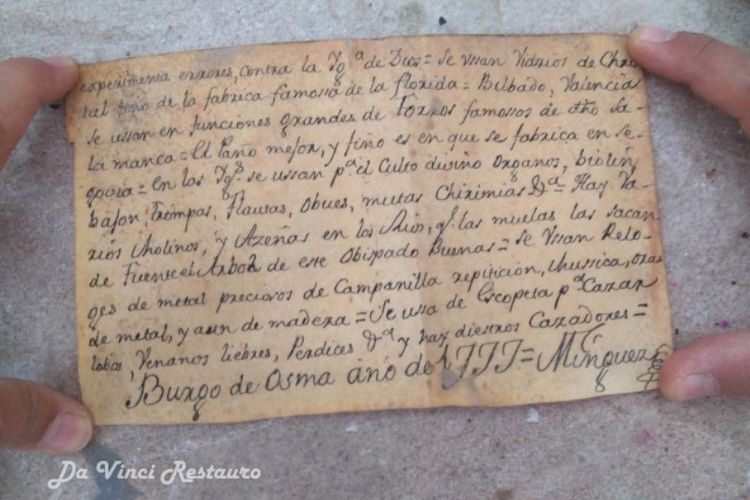 experimenta errores, contra la Ygª de Dios = Se ussan Vidrios de Chris
tal fino de la fabrica famossa de la florida = Bilbado, Valencia
se ussan en funciones grandes de Toros famosos de dho Sa-
lamanca = El Paño mejor, y fino es en que se fabrica en Se-
govia = en las Ygˢ se ussan pª el Culto divino Organos, biolin
bajon, Trompas, Flautas, Obues, mutas Chirimias &ª = Hay Va-
rios Molinos, y Azeñas en los Rios, q las muelas las sacan
de Fuentcel Arbol de este Obispado Buenas = Se Ussan Relo-
ges de metal preciosos de Campanilla repiticion, Mussica, otros
de metal, y aun de madera = Se ussa de Escopeta pª Cazar
lobos, Venanos liebres, Perdices &ª y hay diestros Cazadores =
Burgo de Osma año de 1777 = Minguez
Da Vinci Restauro